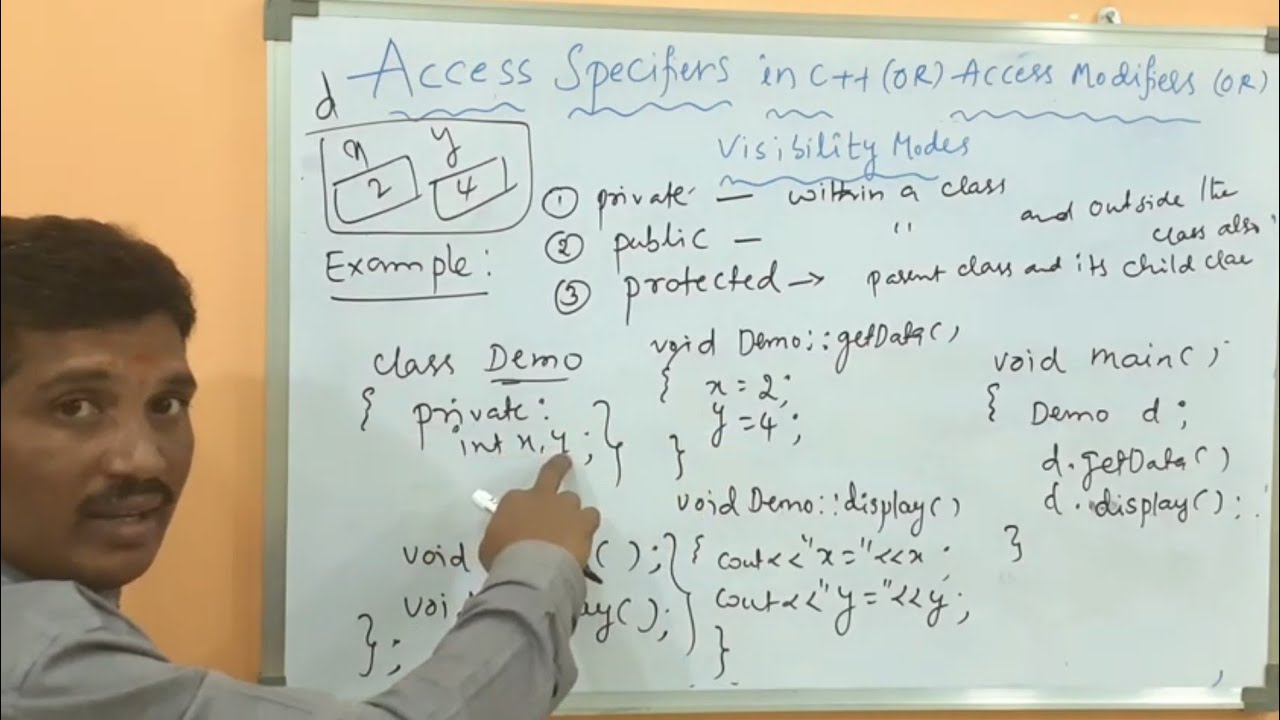 Access Specifiers in C++ (OR) Access Modifiers (OR)
Visibility Modes
d
x y
2 4
① private — within a class
② public — " and outside the class also
③ protected → parent class and its child clae
Example:
class Demo
{ private:
int x, y; }
void ();
void ay();
};
void Demo::getData()
{ x = 2;
y = 4;
}
void Demo::display()
{ cout<<"x="<<x;
cout<<"y="<<y;
}
void main()
{ Demo d;
d.getData()
d.display();
}